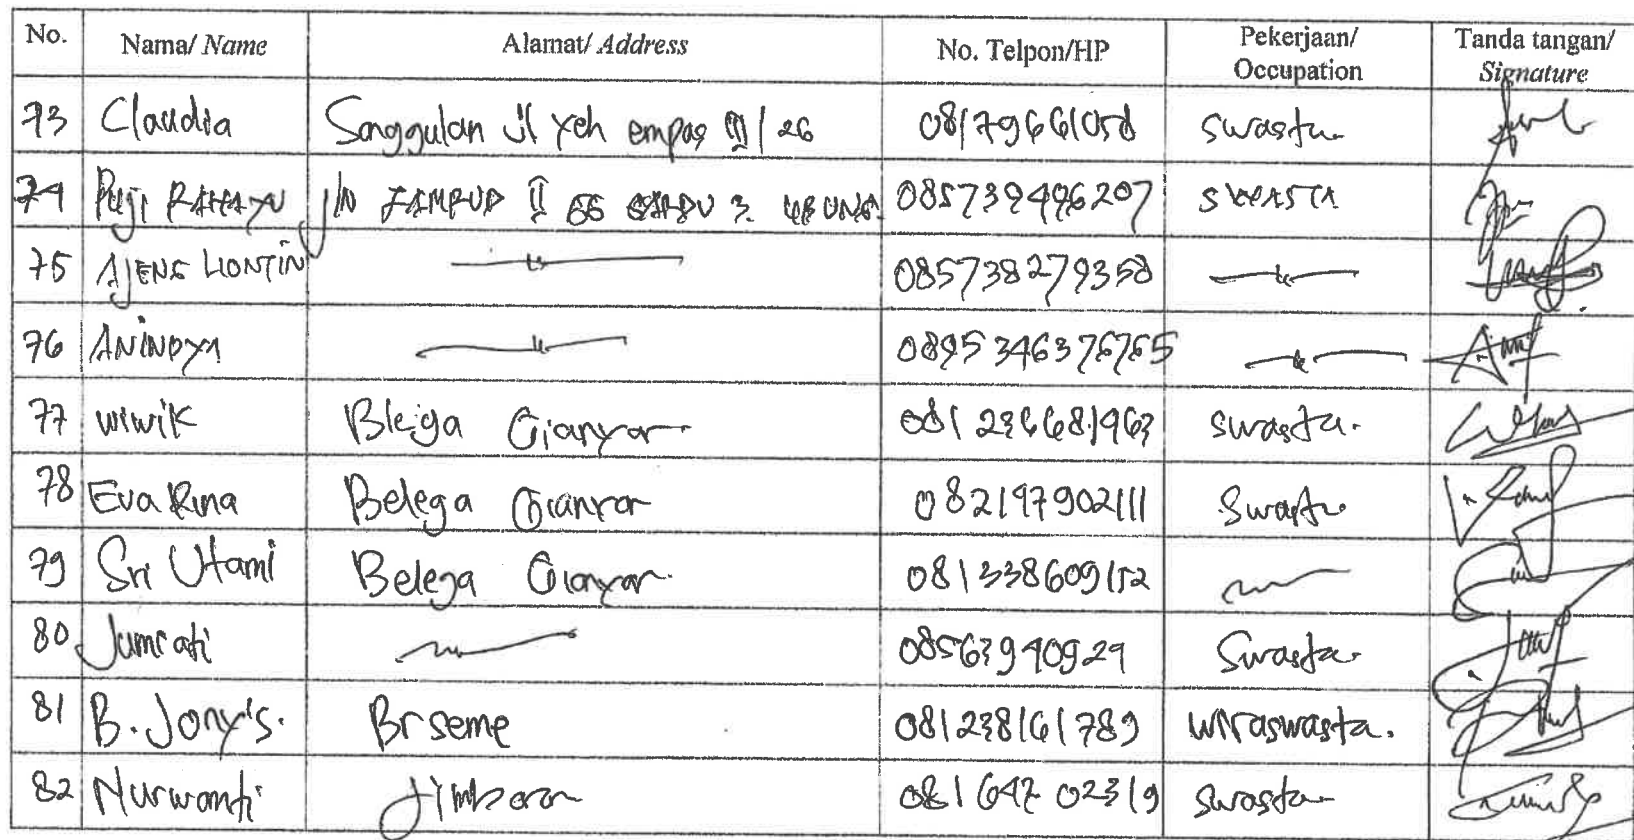 No. Nama/ Name Alamat/ Address No. Telpon/HP Pekerjaan/ Occupation Tanda tangan/ Signature
73 Claudia Sanggulan Jl Yeh empas III/26 08179661058 Swasta
74 Puji RAHAYU JLN ZAMRUD II 085739496207 SWASTA
75 AJENG LIONTIN 085738279358
76 ANINDYA 0895346376765
77 wiwik Blega Gianyar 081236681963 Swasta.
78 Eva Rina Belega Gianyar 082197902111 Swasta
79 Sri Utami Belega Gianyar 081338609152
80 Jumrati 08563940929 Swasta
81 B. Jony's. Br seme 081238161789 wiraswasta.
82 Nurwanti Jimbaran 081647 02319 Swasta